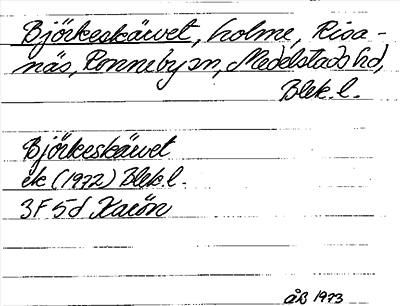 Björkeskärvet, holme, Risa-
näs, Ronneby sn, Medelstads hd,
Blek. l.
Björkeskärvet
ek (1972) Blek. l.
3F 5d Karön
ÅB 1973